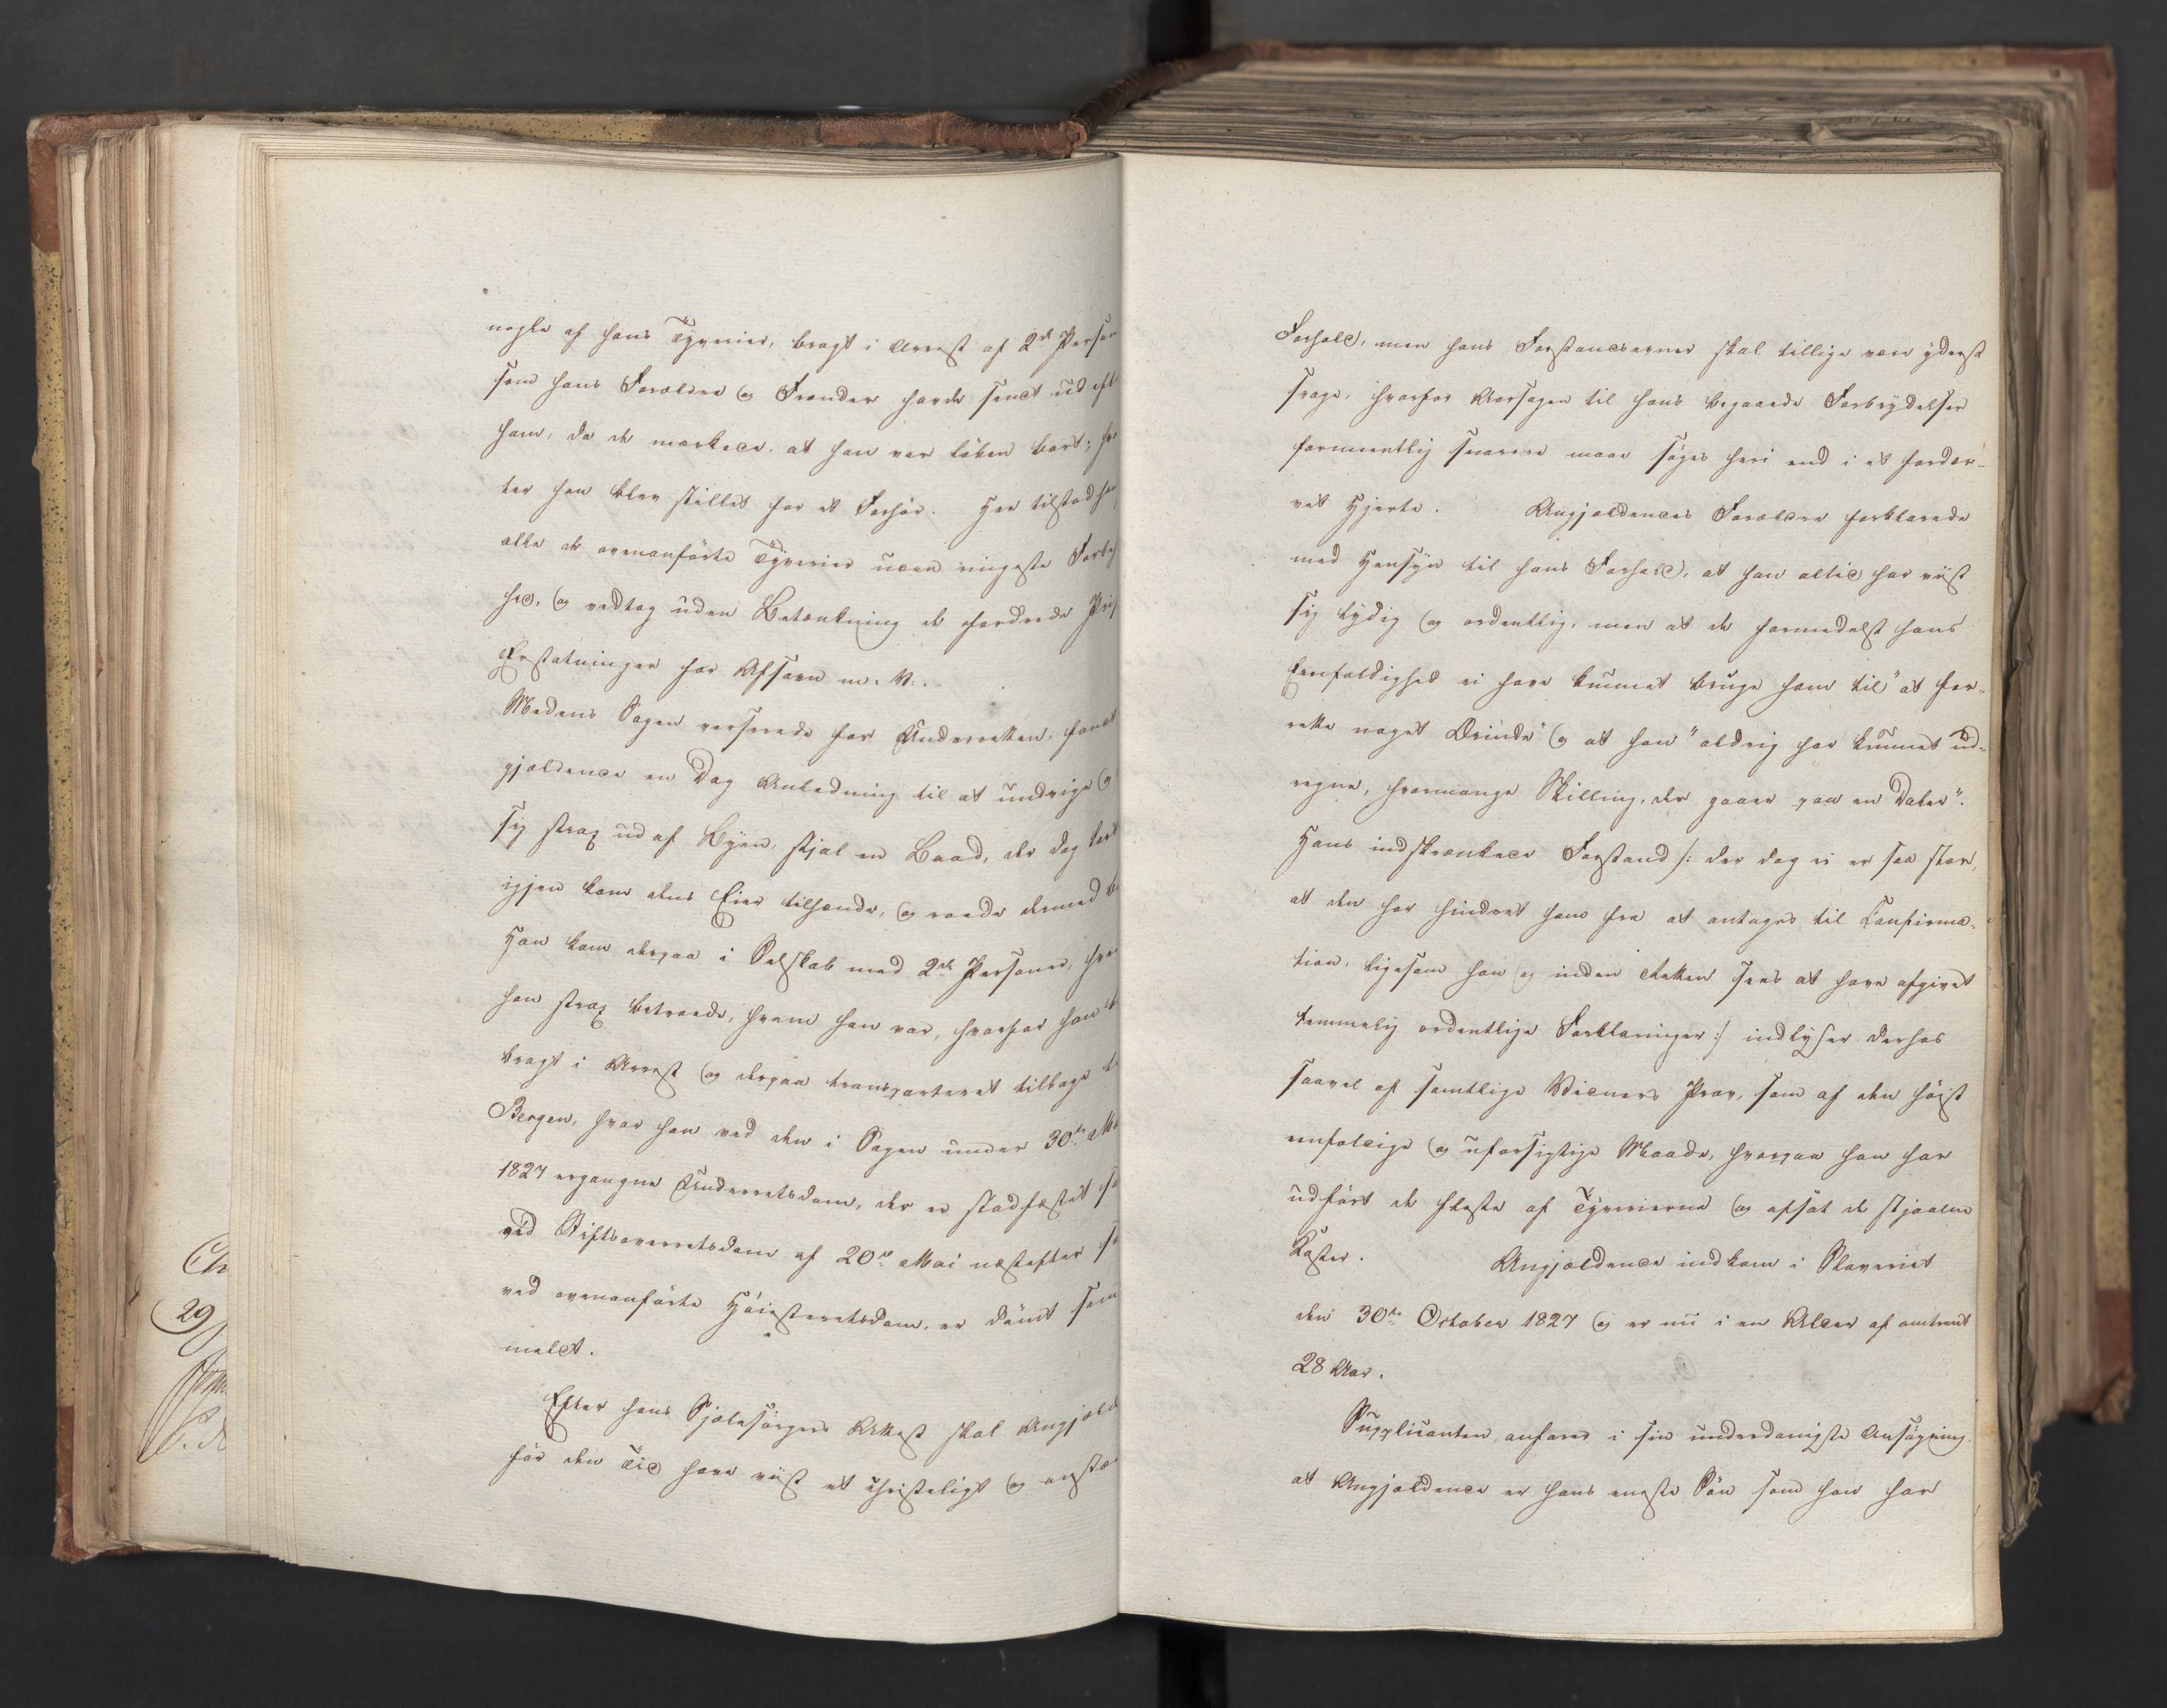 nogle af hans Tyverier, bragt i Arrest af 2de Person
som hans Forældre og Frænder havde sendt ud eft
ham, da de mærkede, at han var løben bort; hvo
ter han blev stillet for et Forhør. Her tilstod han
alle de ovenanførte Tyverier uden ringeste Forbe
hold, og vedtog uden Betænkning de fordrede
Erstatninger for Afsavn m. V..
Medens Sagen verserede for Underretten, fandt
gjældende en Dag Anledning til at undvige og
sig strax ud af Byen, stjal en Baad, der dog
igjen kom dens Eier tilhænde, og roede dermed
Han kom derpaa i Selskab med 2de Personer, hvo
han strax betroede, hvem han var, hvorfor han
bragt i Arrest og derpaa transporteret tilbage t
Bergen, hvor han ved den i Sagen under 30te
1827 ergangne Underretsdom, der er stadfæstet so
ved Stiftsoverretsdom af 20de Mai næstefter so
ved ovenanførte Høiesteretsdom, er dømt som
meldt.
Efter hans Sjælesørgers Attest skal Angjæld
før den Tid have viist et christeligt og anstæ
Forhold, men hans Forstandsevner skal tillige være yderst
svage, hvorfor Aarsagen til hans begaaede Forbrydelser
formeentlig snarere maae søges heri end i et fordær-
vet Hjerte. Angjældendes Forældre forklarede
med Hensyn til hans Forhold, at han altid har viist
sig lydig og ordentlig, men at de formedelst hans
Eenfoldighed ei have kunnet bruge ham til "at for-
rette noget Ærinde" og at han "aldrig har kunnet ud-
regne, hvormange Skilling, der gaaer paa en Daler".
Hans indskrænkede Forstand /: der dog ei er saa stor,
at den har hindret ham fra at antages til Confirma-
tion, ligesom han og inden Retten sees at have afgivet
temmelig ordentlige Forklaringer :/ indlyser derhos
saavel af samtlige Vidners Prov, som af den høist
eenfoldige og uforsigtige Maade, hvorpaa han har
udført de fleste af Tyverierne og afsat de stjaalne
Koster. Angjældende indkom i Slaveriet
den 30te October 1827 og er nu i en Alder af omtrent
28 Aar.
Supplicanten anfører i sin underdanigste Ansøgning,
at Angjældende er hans eneste Søn som han har
Ch
29